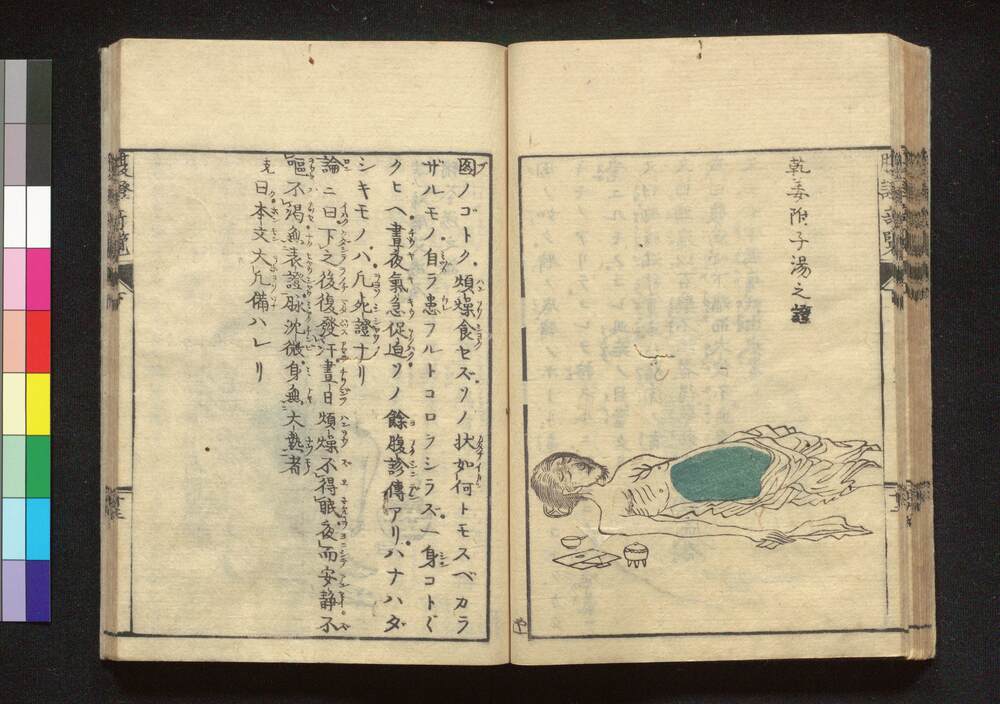 乾姜附子湯之證
図ノゴトク煩燥食セズソノ状如何トモスベカラ
ザルモノ自ラ患フルトコロヲシラズ一身コトゴト
クヒヘ晝夜氣急促迫ソノ餘腹診傳アリハナハダ
シキモノハ凡死證ナリ
論ニ曰下之後復發汗晝日煩燥不得眠夜而安静不
嘔不渇無表證脉沈微身無大熱者
克曰本文大凡備ハレリ